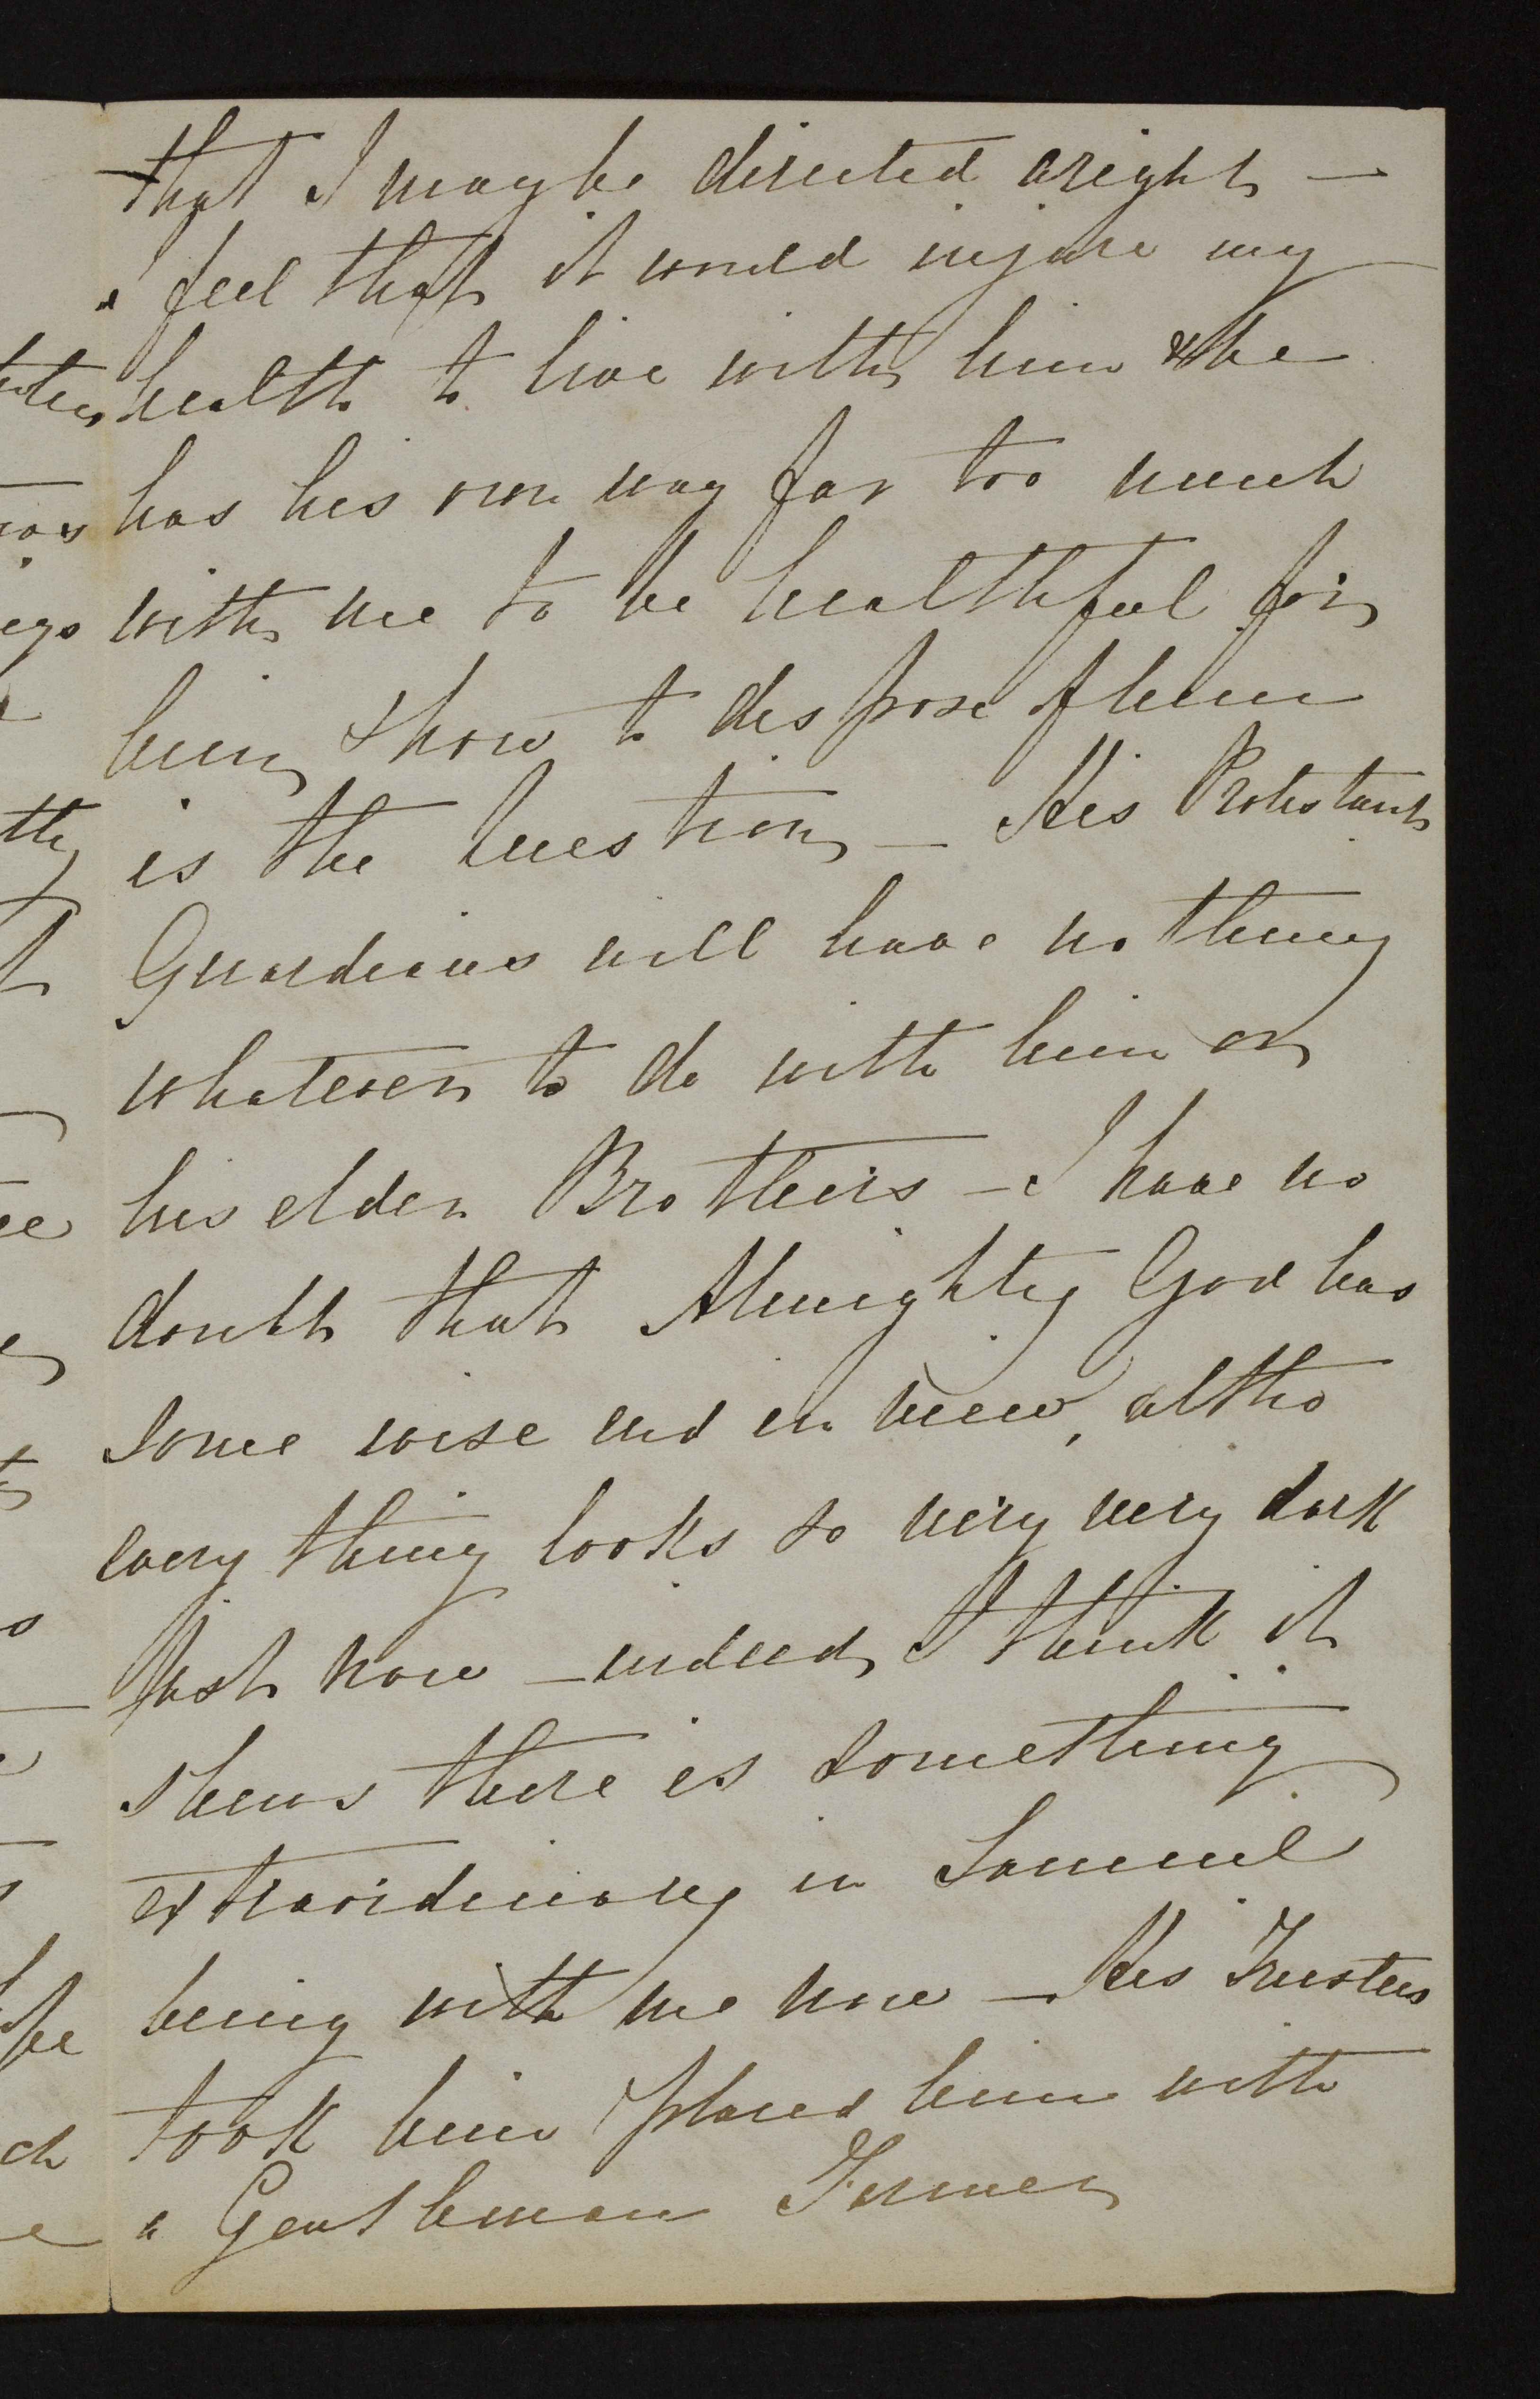 that I may be directed aright —
I feel that it would injure my
health to live with him & he
has his own way far too much
with me to be healthful for
him, & how to dispose of him
is the question — His Protestant
Guardians will have no thing
whatever to do with him or
his elder Brothers — I have no
doubt that Almighty God has
some wise end in view, altho
every thing looks so very very dark
just now — indeed, I think it
shews there is something
extraordinary in Samuel
being with me now — His Trustees
took him & placed him with
a Gentleman Farmer